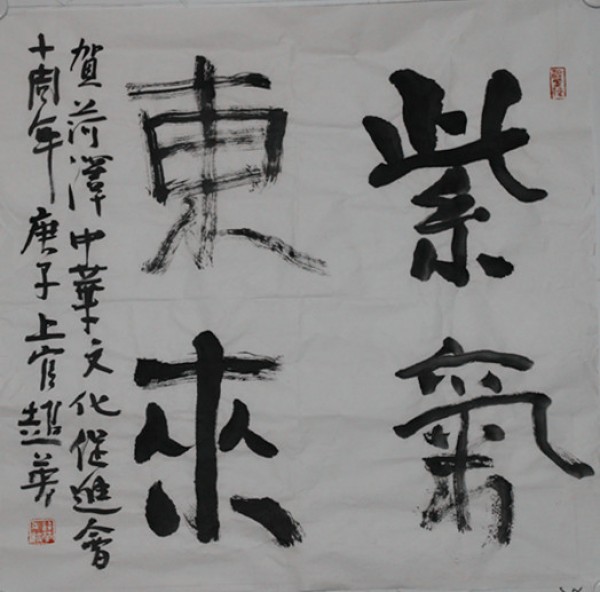 紫氣
東來
賀菏澤中華文化促進會
十周年庚子上官超英